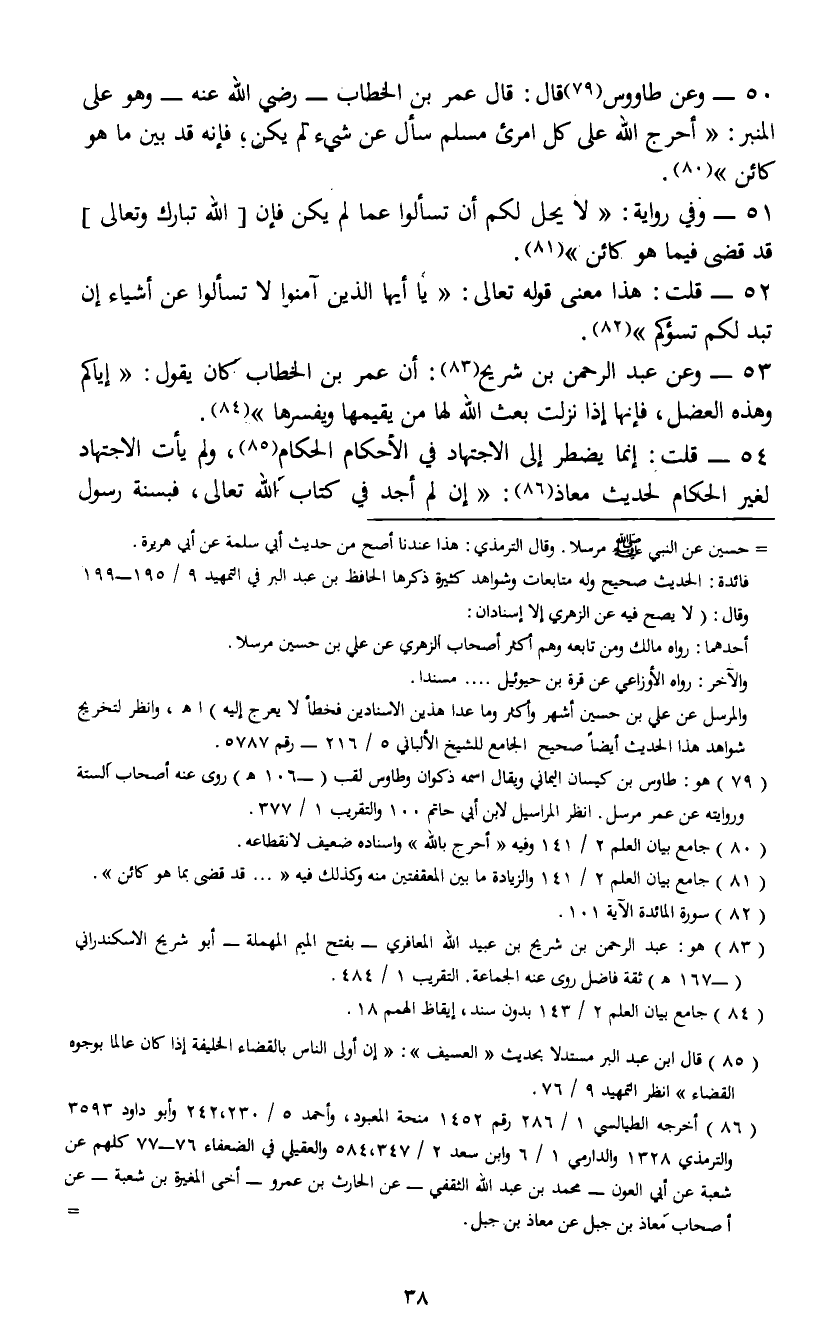 ٥٠ — وعن طاووس(٧٩)قال : قال عمر بن الخطاب — رضي الله عنه — وهو على
المنبر : « أحرج الله على كل امرئ مسلم سأل عن شيء لم يكن؛ فإنه قد بين ما هو
كائن »(٨٠).
٥١ — وفي رواية : « لا يحل لكم أن تسألوا عما لم يكن فإن [ الله تبارك وتعالى ]
قد قضى فيما هو كائن »(٨١).
٥٢ — قلت : هذا معنى قوله تعالى : « يا أيها الذين آمنوا لا تسألوا عن أشياء إن
تبد لكم تسؤكم »(٨٢).
٥٣ — وعن عبد الرحمن بن شريح(٨٣) : أن عمر بن الخطاب كان يقول : « إياكم
وهذه العضل ، فإنها إذا نزلت بعث الله لها من يقيمها ويفسرها »(٨٤).
٥٤ — قلت : إنما يضطر إلى الاجتهاد في الأحكام الحكام(٨٥)، ولم يأت الاجتهاد
لغير الحكام لحديث معاذ(٨٦) : « إن لم أجد في كتاب الله تعالى ، فبسنة رسول
= حسين عن النبي ﷺ مرسلا . وقال الترمذي : هذا عندنا أصح من حديث أبي سلمة عن أبي هريرة .
فائدة : الحديث صحيح وله متابعات وشواهد كثيرة ذكرها الحافظ بن عبد البر في التمهيد ٩ / ١٩٥—١٩٩
وقال : ( لا يصح فيه عن الزهري إلا إسنادان :
أحدهما : رواه مالك ومن تابعه وهم أكثر أصحاب الزهري عن علي بن حسين مرسلا .
والآخر : رواه الأوزاعي عن قرة بن حيوئيل .... مسندا .
والمرسل عن علي بن حسين أشهر وأكثر وما عدا هذين الاسنادين فخطأ لا يعرج إليه ) ا هـ ، وانظر لتخريج
شواهد هذا الحديث أيضاً صحيح الجامع للشيخ الألباني ٥ / ٢١٦ — رقم ٥٧٨٧ .
( ٧٩ ) هو : طاوس بن كيسان اليماني ويقال اسمه ذكوان وطاوس لقب ( —١٠٦ هـ ) روى عنه أصحاب الستة
وروايته عن عمر مرسل . انظر المراسيل لابن أبي حاتم ١٠٠ والتقريب ١ / ٣٧٧ .
( ٨٠ ) جامع بيان العلم ٢ / ١٤١ وفيه « أحرج بالله » واسناده ضعيف لانقطاعه .
( ٨١ ) جامع بيان العلم ٢ / ١٤١ والزيادة ما بين المعقفتين منه وكذلك فيه « ... قد قضى بما هو كائن » .
( ٨٢ ) سورة المائدة الآية ١٠١ .
( ٨٣ ) هو : عبد الرحمن بن شريح بن عبيد الله المعافري — بفتح الميم المهملة — أبو شريح الاسكندراني
( —١٦٧ هـ ) ثقة فاضل روى عنه الجماعة. التقريب ١ / ٤٨٤ .
( ٨٤ ) جامع بيان العلم ٢ / ١٤٣ بدون سند ، إيقاظ الهمم ١٨ .
( ٨٥ ) قال ابن عبد البر مستدلا بحديث « العسيف » : « إن أولى الناس بالقضاء الخليفة إذا كان عالما بوجوه
القضاء » انظر التمهيد ٩ / ٧٦ .
( ٨٦ ) أخرجه الطيالسي ١ / ٢٨٦ رقم ١٤٥٢ منحة المعبود، وأحمد ٥ / ٢٤٢،٢٣٠ وأبو داود ٣٥٩٣
والترمذي ١٣٢٨ والدارمي ١ / ٦ وابن سعد ٢ / ٥٨٤،٣٤٧ والعقيلي في الضعفاء ٧٦—٧٧ كلهم عن
شعبة عن أبي العون — محمد بن عبد الله الثقفي — عن الحارث بن عمرو — أخى المغيرة بن شعبة — عن
أصحاب معاذ بن جبل عن معاذ بن جبل . =
٣٨